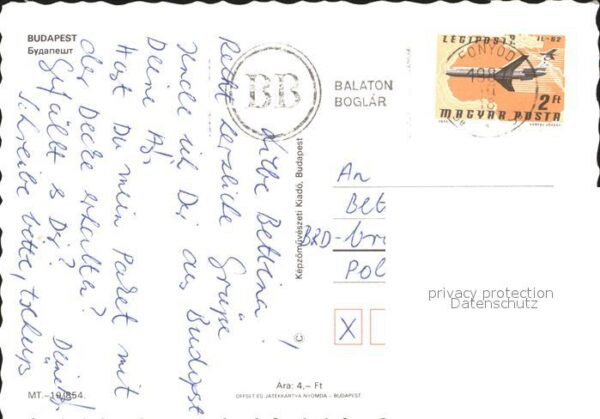 BUDAPEST
Будапешт
BB
BALATON
BOGLÁR
LÉGIPOSTA
IL-62
FONYÓD
2 Ft
MAGYAR POSTA
Liebe Bettina!
Recht herzliche Grüße
sende ich Dir aus Budapest
Deine
Hast Du mein Paket mit
der Decke erhalten?
Gefällt es Dir?
Schreibe bitte, tschüß
An
Bet
BRD-
Pol
Képzőművészeti Kiadó, Budapest
©
privacy protection
Datenschutz
X
MT.-19/854.
Ára: 4,– Ft
OFFSET ÉS JÁTÉKKÁRTYA NYOMDA – BUDAPEST